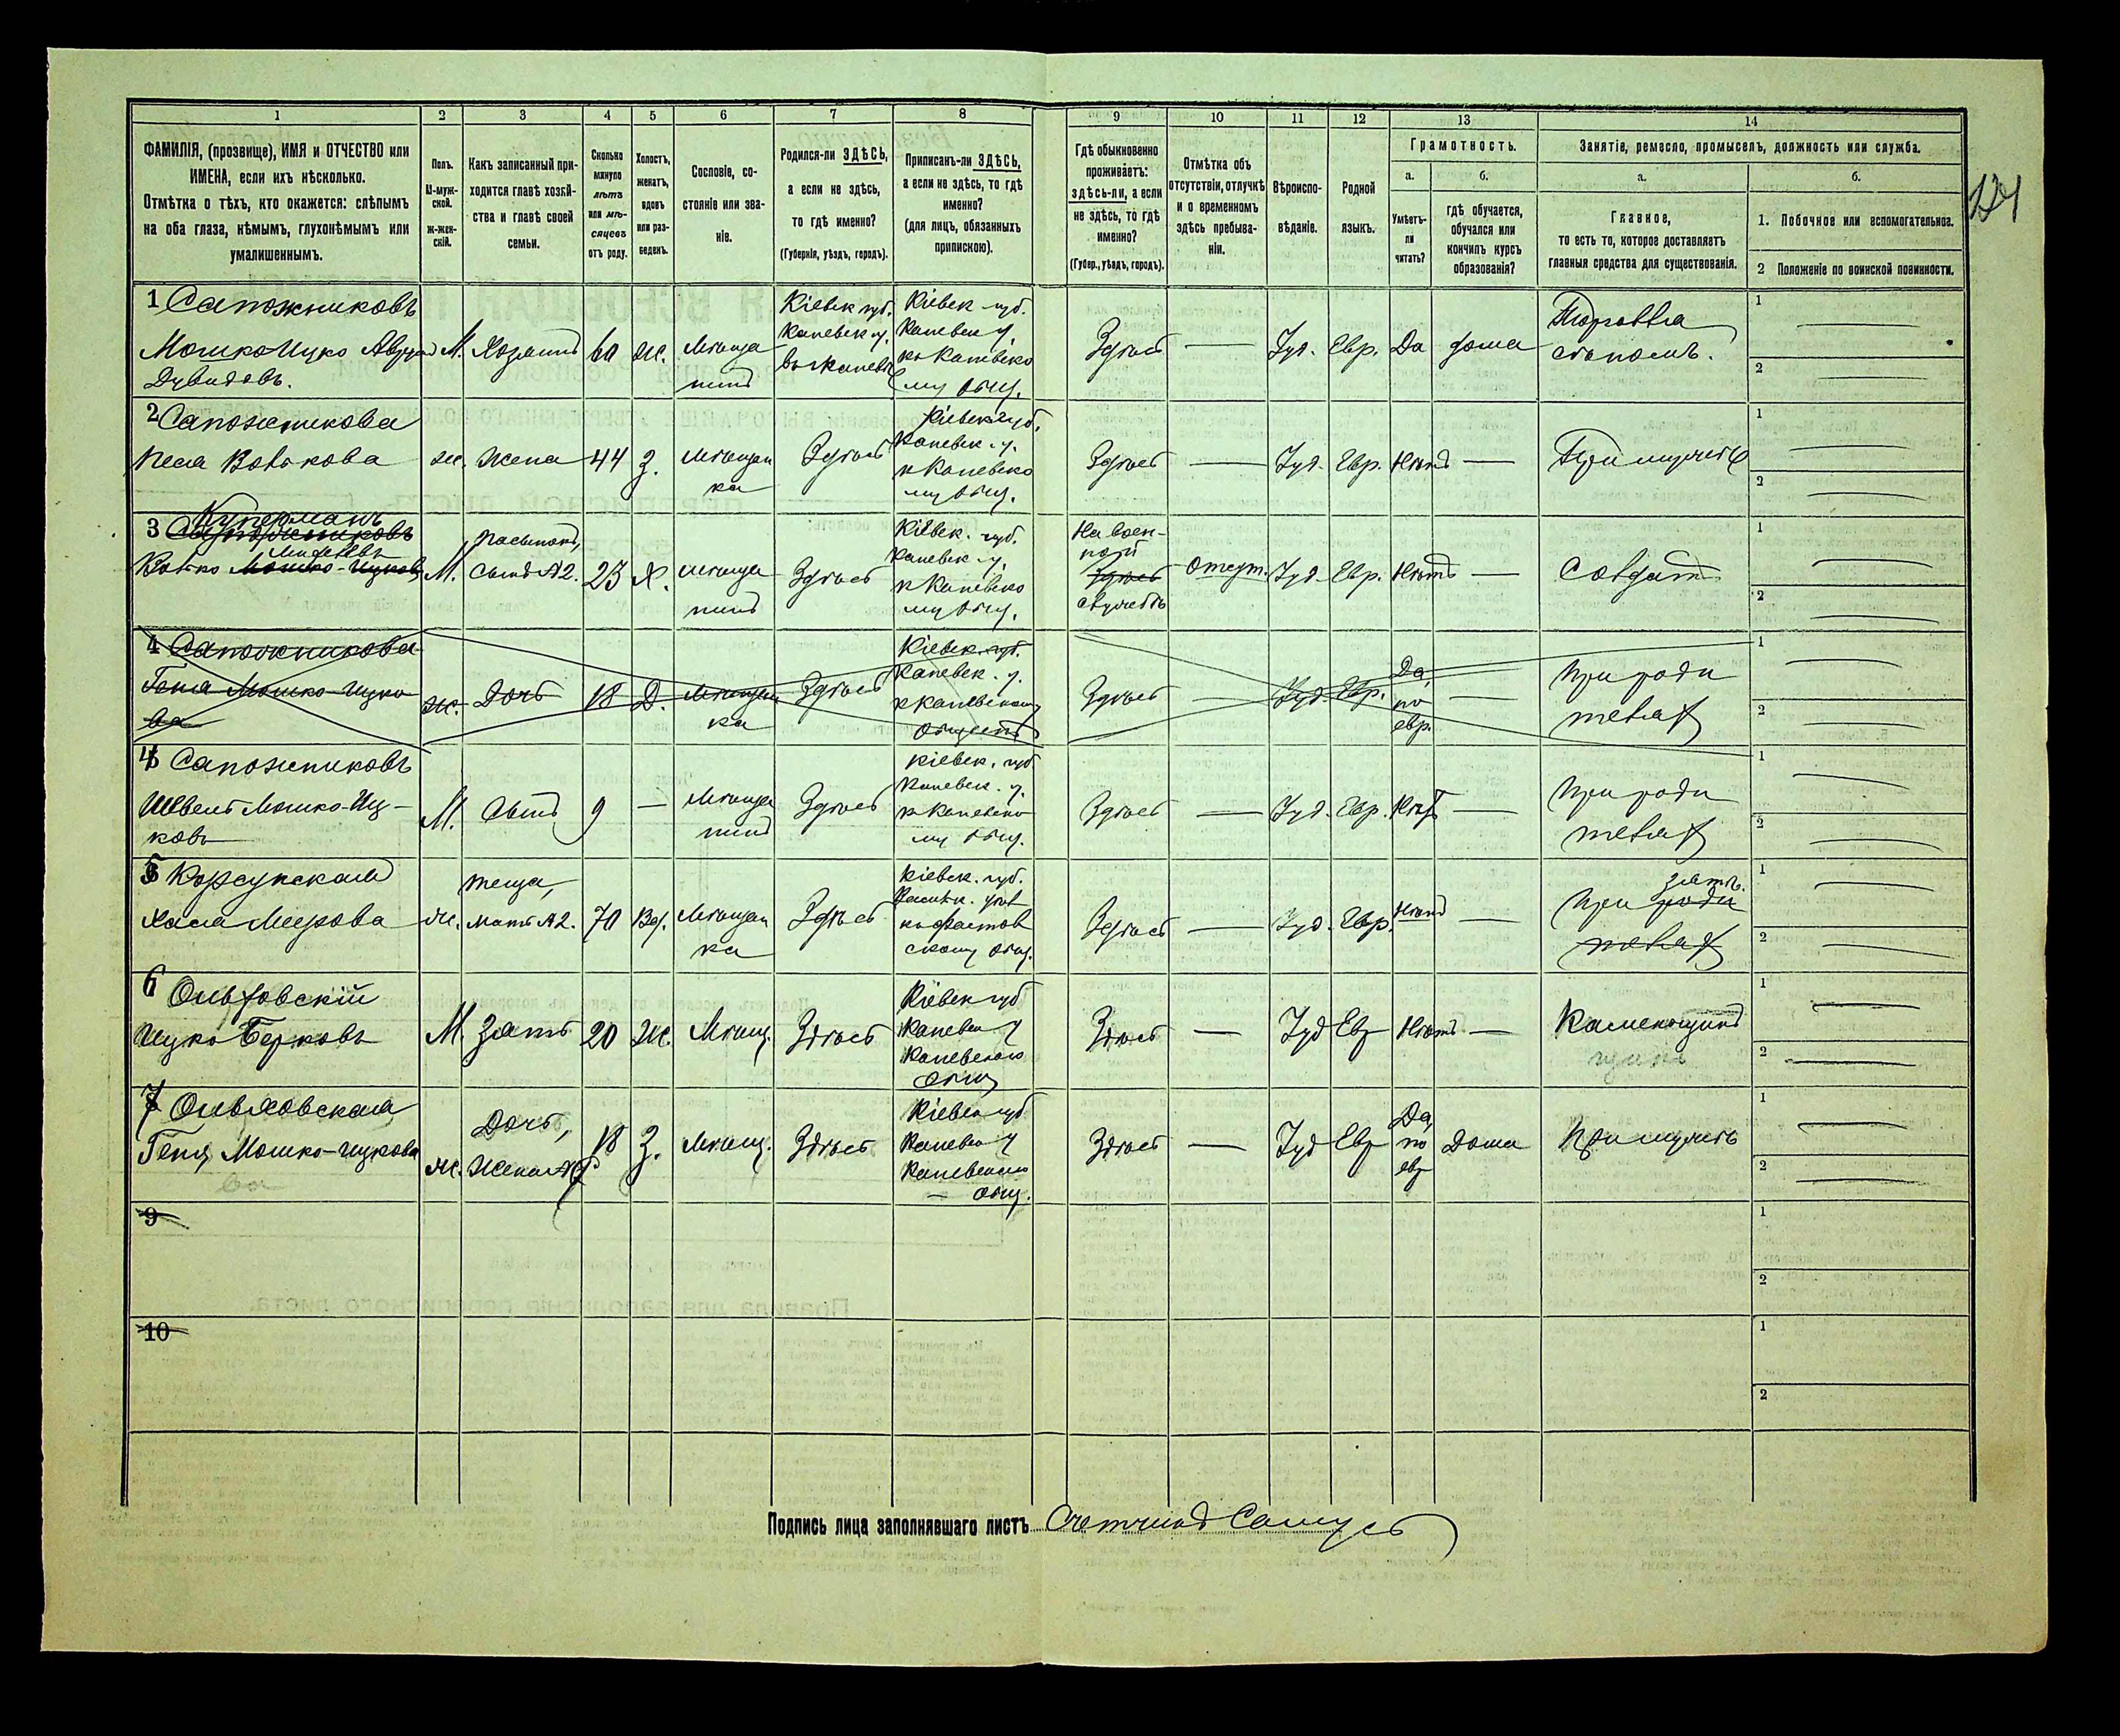 1 2 3 4 5 6 7 8 9 10 11 12 13 14
ФАМИЛІЯ, (прозвище), ИМЯ и ОТЧЕСТВО или
ИМЕНА, если ихъ нѣсколько.
Отмѣтка о тѣхъ, кто окажется: слѣпымъ
на оба глаза, нѣмымъ, глухонѣмымъ или
умалишеннымъ.
Полъ.
М-муж-
ской.
Ж-жен-
скій.
Какъ записанный при-
ходится главѣ хозяй-
ства и главѣ своей
семьи.
Сколько
минуло
лѣтъ
или мѣ-
сяцевъ
отъ роду.
Холостъ,
женатъ,
вдовъ
или раз-
веденъ.
Сословіе, со-
стояніе или зва-
ніе.
Родился-ли ЗДѢСЬ,
а если не здѣсь,
то гдѣ именно?
(Губернія, уѣздъ, городъ).
Приписанъ-ли ЗДѢСЬ,
а если не здѣсь, то гдѣ
именно?
(для лицъ, обязанныхъ
припискою).
Гдѣ обыкновенно
проживаетъ:
здѣсь-ли, а если
не здѣсь, то гдѣ
именно?
(Губер., уѣздъ, городъ).
Отмѣтка объ
отсутствіи, отлучкѣ
и о временномъ
здѣсь пребыва-
ніи.
Вѣроиспо-
вѣданіе.
Родной
языкъ.
Грамотность.
а. б.
Умѣетъ-
ли
читать?
гдѣ обучается,
обучался или
кончилъ курсъ
образованія?
Занятіе, ремесло, промыселъ, должность или служба.
а. б.
Главное,
то есть то, которое доставляетъ
главныя средства для существованія.
1. Побочное или вспомогательное.
2 Положеніе по воинской повинности.
1 Сапожниковъ
Мошко-Ицко
Дувидовъ.
М.
Хозяинъ
60
Ж.
Мѣща
нинъ
Кіевск губ.
Каневск у.
Кіевск губ.
Каневск у.
къ Каневско
му общ.
Здѣсь
—
Іуд.
Евр.
Да
дома
Торговля
1
2
2 Сапожникова
Песя Волькова
ж.
Жена
44
З.
Мѣщан
ка
Здѣсь
Кіевск губ.
Каневск. у.
к Каневско
му общ.
Здѣсь
—
Іуд.
Евр.
Нѣтъ
—
При мужѣ
1
2
Куперманъ
3 Сапожниковъ
Волько Мошко-Ицковъ
М.
Пасынокъ,
Сынъ №2.
23
Х.
Мѣща
нинъ
Здѣсь
Кіевск. губ.
Каневск. у.
к Каневско
му общ.
На воен-
ной
Здѣсь
службѣ
Отсут.
Іуд.
Евр.
Нѣтъ
—
Солдатъ
1
2
4 Сапожникова
Геня Мошко-Ицко
ва
ж.
Дочь
18
Д.
Мѣщан
ка
Здѣсь
Кіевск. губ.
Каневск. у.
к Каневскому
Здѣсь
—
Іуд.
Евр.
Да,
по
евр.
—
При роди
телях
1
2
4 Сапожниковъ
Мошко-Иц-
ковъ
М.
Сынъ
9
—
Мѣща
нинъ
Здѣсь
Кіевск. губ
Каневск. у.
к Каневско
му общ.
Здѣсь
—
Іуд.
Евр.
Нѣтъ
—
При роди
телях
1
2
5 Корсунская
Хася Меерова
ж.
теща,
мать №2.
70
Вд.
Мѣщан
ка
Здѣсь
Кіевск. губ.
скому общ.
Здѣсь
—
Іуд.
Евр.
Нѣтъ
—
зятѣ.
При роди
телях
1
2
6 Ольховскій
Ицко Берковъ
М.
Зять
20
Ж.
Мѣщ.
Здѣсь
Кіевск губ
Каневск у
Каневского
общ
Здѣсь
—
Іуд
Евр
Нѣтъ
—
Каменщикъ
1
2
7 Ольховская
Геня Мошко-Ицкова
ва
ж.
Дочь,
Жена №6
18
З.
Мѣщ.
Здѣсь
Кіевск губ
Каневск у
Каневского
общ.
Здѣсь
—
Іуд
Евр
Да,
по
евр
Дома
При мужѣ
1
2
9
1
2
10
1
2
Подпись лица заполнявшаго листъ Счетчикъ Самусь